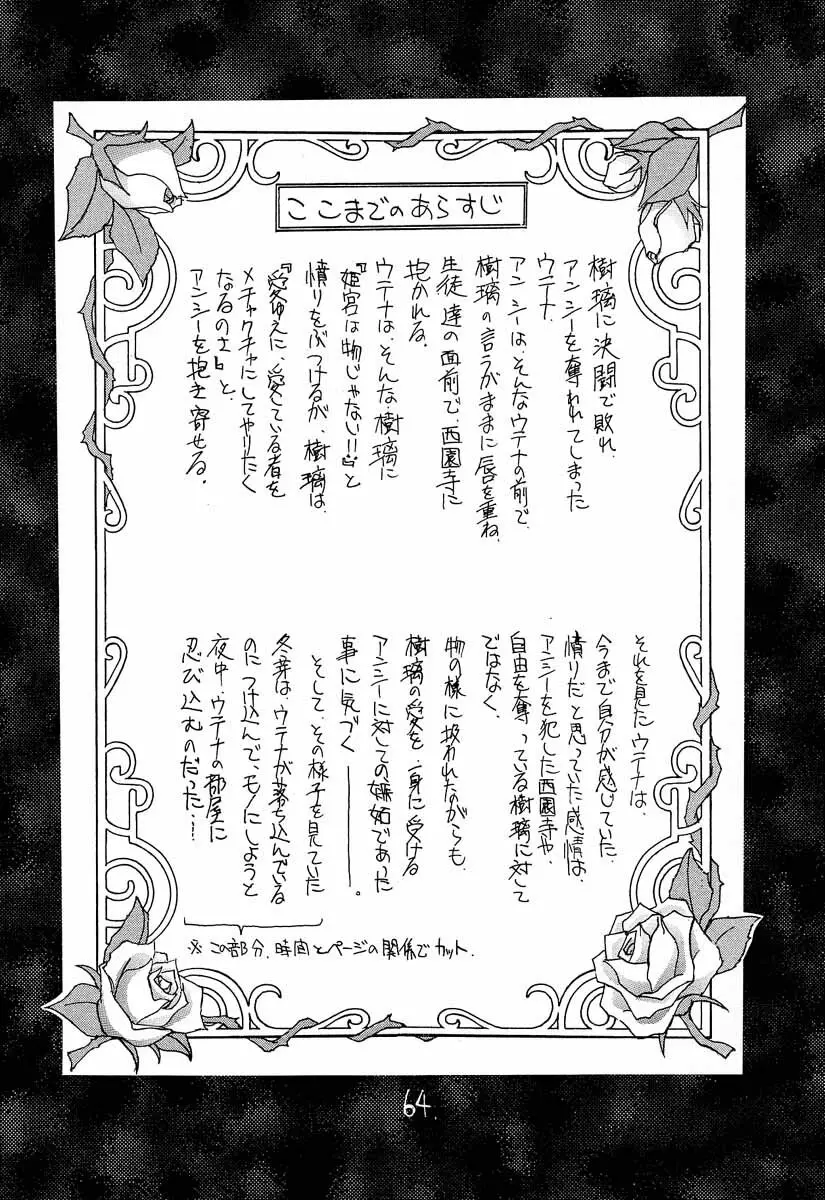 ここまでのあらすじ
樹璃に決闘で敗れ、
アンシーを奪われてしまった
ウテナ。
アンシーは、そんなウテナの前で、
樹璃の言うがままに唇を重ね、
生徒達の面前で、西園寺に
抱かれる。
ウテナは、そんな樹璃に
『姫宮は物じゃない!!』と
憤りをぶつけるが、樹璃は、
『愛ゆえに、愛している者を
メチャクチャにしてやりたく
なるのさ』と、
アンシーを抱き寄せる。
それを見たウテナは、
今まで自分が感じていた、
憤りだと思っていた感情は、
アンシーを犯した西園寺や、
自由を奪っている樹璃に対して
ではなく、
物の様に扱われながらも、
樹璃の愛を一身に受ける
アンシーに対しての嫉妬であった
事に気づく――――。
そして、その様子を見ていた
冬芽は、ウテナが落ち込んでいる
のにつけ込んで、モノにしようと
夜中、ウテナの部屋に
忍び込むのだった……
※この部分、時間とページの関係でカット.
64.